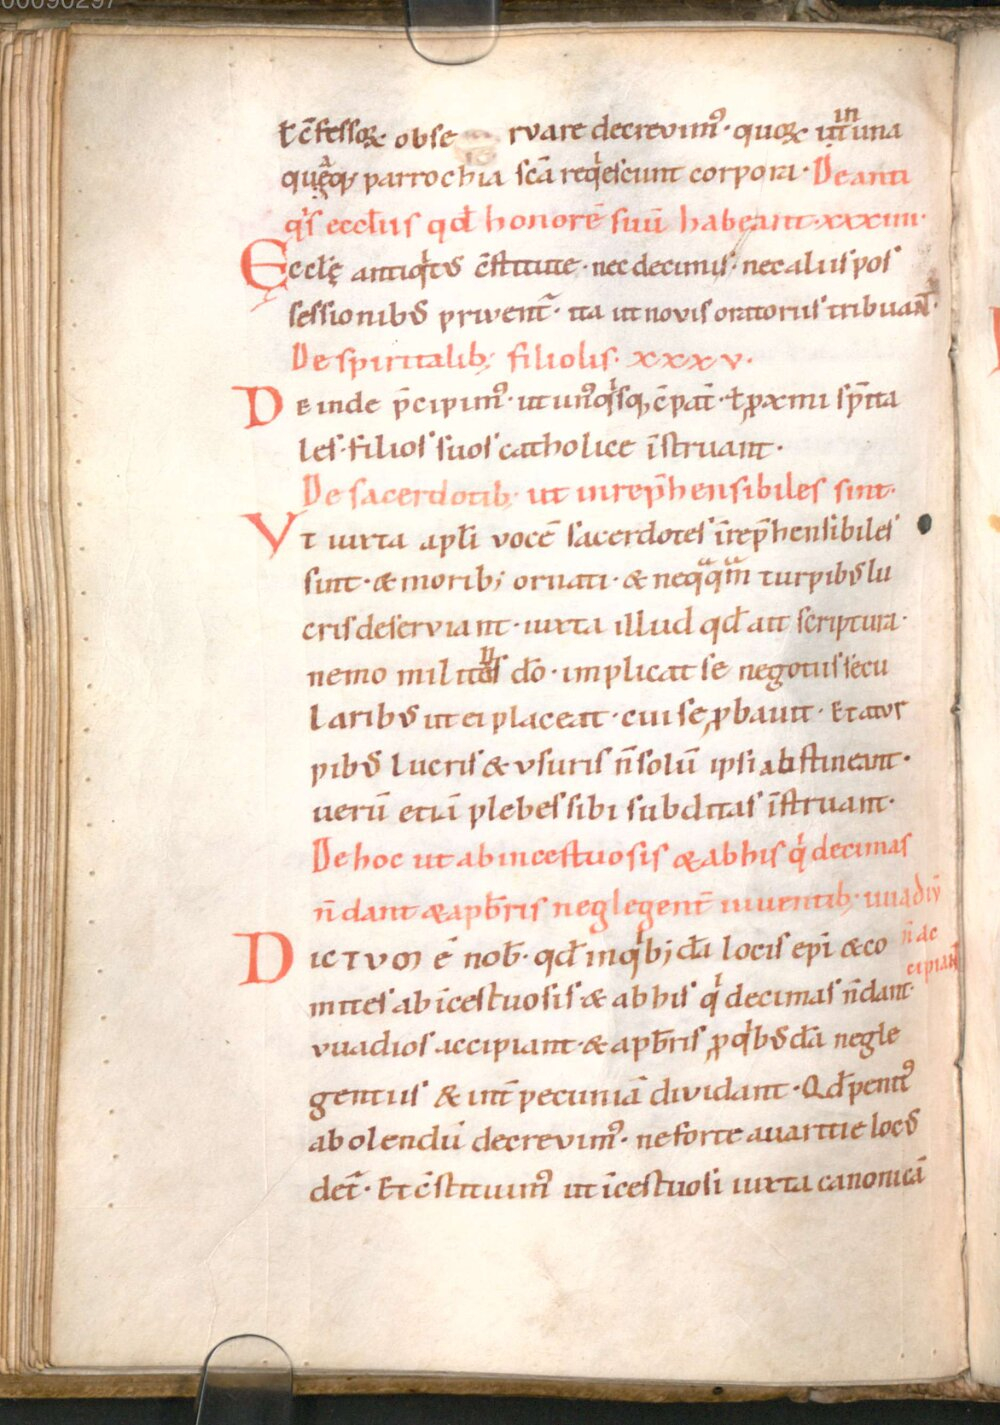 00090297
ł c̄fessoꝝ· obse rvare decrevimꝰ· quoꝝ ut in una
quaq; parrochia scā req'escunt corpora· De anti
q's eccliis qđ honorē suū habeant· xxxiiii·
Ecclę antiq'tꝰ c̄stitute· nec decimis· nec aliis pos
sessionibꝰ privent̄· ita ut novis oratoriis tribuant̄·
De spiritalib; filiolis· xxxv·
Deinde p̄cipimꝰ· ut unꝰq'sq; c̄pat̄· ł ꝓximi sp̄ita
les· filios suos catholice īstruant·
De sacerdotib; ut inrep̄hensibiles sint·
Vt iuxta apłi vocē sacerdotes īrep̄hensibiles
sint· & morib; ornati· & neqͣqͣm turpibꝰ lu
cris deserviant· iuxta illud qđ ait scriptura·
nemo militans dō· implicat se negotiis secu
laribꝰ ut ei placeat· cui se ꝓbavit· Et a tur
pibꝰ lucris & usuris n̄ solū ipsi abstineant·
verū etiā plebes sibi subditas īstruant·
De hoc ut ab incestuosis & ab his q' decimas
n̄ dant & a p̄bris neglegent̄ viventib; uuadiū
n̄ ac
cipiant̄
Dictvm ē nob̄· qđ in q'b;dā locis epi & co
mites ab īcestuosis & ab his q' decimas n̄ dant·
vuadios accipiant· & a p̄bris ꝓ q'bꝰdā negle
gentiis & int̄ pecuniā dividant· Qđ penitꝰ
abolendū decrevimꝰ· ne forte avaritie locꝰ
det̄· Et c̄stituimꝰ ut īcestuosi iuxta canonicā